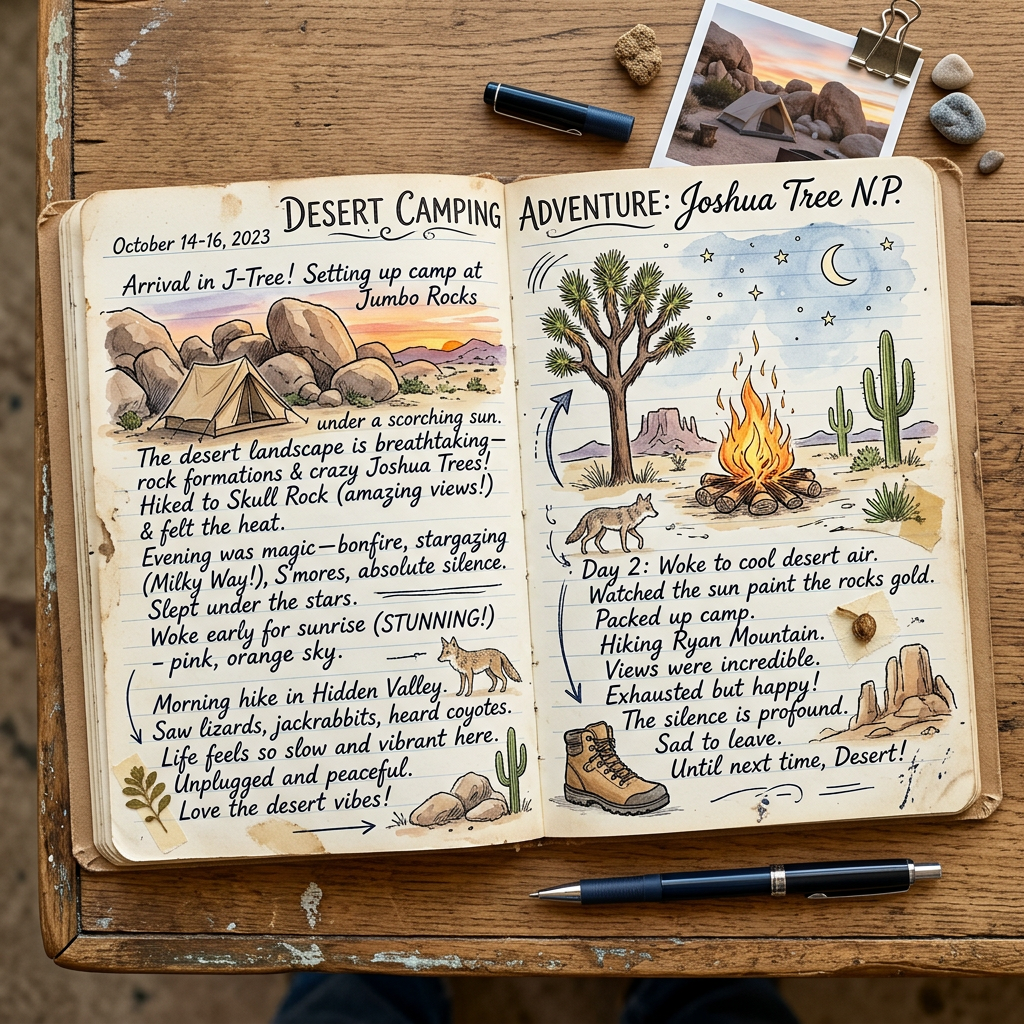 DESERT CAMPING ADVENTURE: Joshua Tree N.P.
October 14-16, 2023
Arrival in J-Tree! Setting up camp at
Jumbo Rocks
under a scorching sun.
The desert landscape is breathtaking—
rock formations & crazy Joshua Trees!
Hiked to Skull Rock (amazing views!)
& felt the heat.
Evening was magic—bonfire, stargazing
(Milky Way!), S'mores, absolute silence.
Slept under the stars.
Woke early for sunrise (STUNNING!)
– pink, orange sky.
Morning hike in Hidden Valley.
Saw lizards, jackrabbits, heard coyotes.
Life feels so slow and vibrant here.
Unplugged and peaceful.
Love the desert vibes!
Day 2: Woke to cool desert air.
Watched the sun paint the rocks gold.
Packed up camp.
Hiking Ryan Mountain.
Views were incredible.
Exhausted but happy!
The silence is profound.
Sad to leave.
Until next time, Desert!